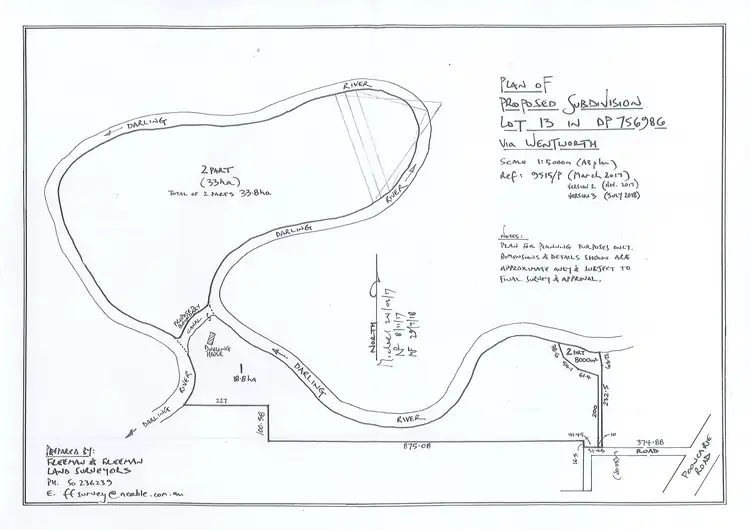 PLAN OF
PROPOSED SUBDIVISION
LOT 13 IN DP 756986
VIA WENTWORTH
SCALE 1:5000m (A3 plan)
Ref: 9515/P (March 2017)
VERSION 2 (Nov. 2017)
VERSION 3 (JULY 2018)
NOTES:
PLAN FOR PLANNING PURPOSES ONLY.
DIMENSIONS & DETAILS SHOWN ARE
APPROXIMATE ONLY & SUBJECT TO
FINAL SURVEY & APPROVAL.
DARLING
RIVER
2 PART
(33ha)
TOTAL OF 2 PARTS 33.8ha
RIVER
DARLING
PROPOSED
BOUNDARY
CANAL
DWELLING
HOUSE
1
18.8ha
NORTH
DARLING
RIVER
RIVER
DARLING
227
100.58
875.08
2 PART
8000m²
61.4
232.5
200
10
16.5
(20.115)
374.88
ROAD
POONCARIE
ROAD
PREPARED BY:
FREEMAN & FREEMAN
LAND SURVEYORS
PH. 50 236239
E. ffsurvey@ncable.com.au